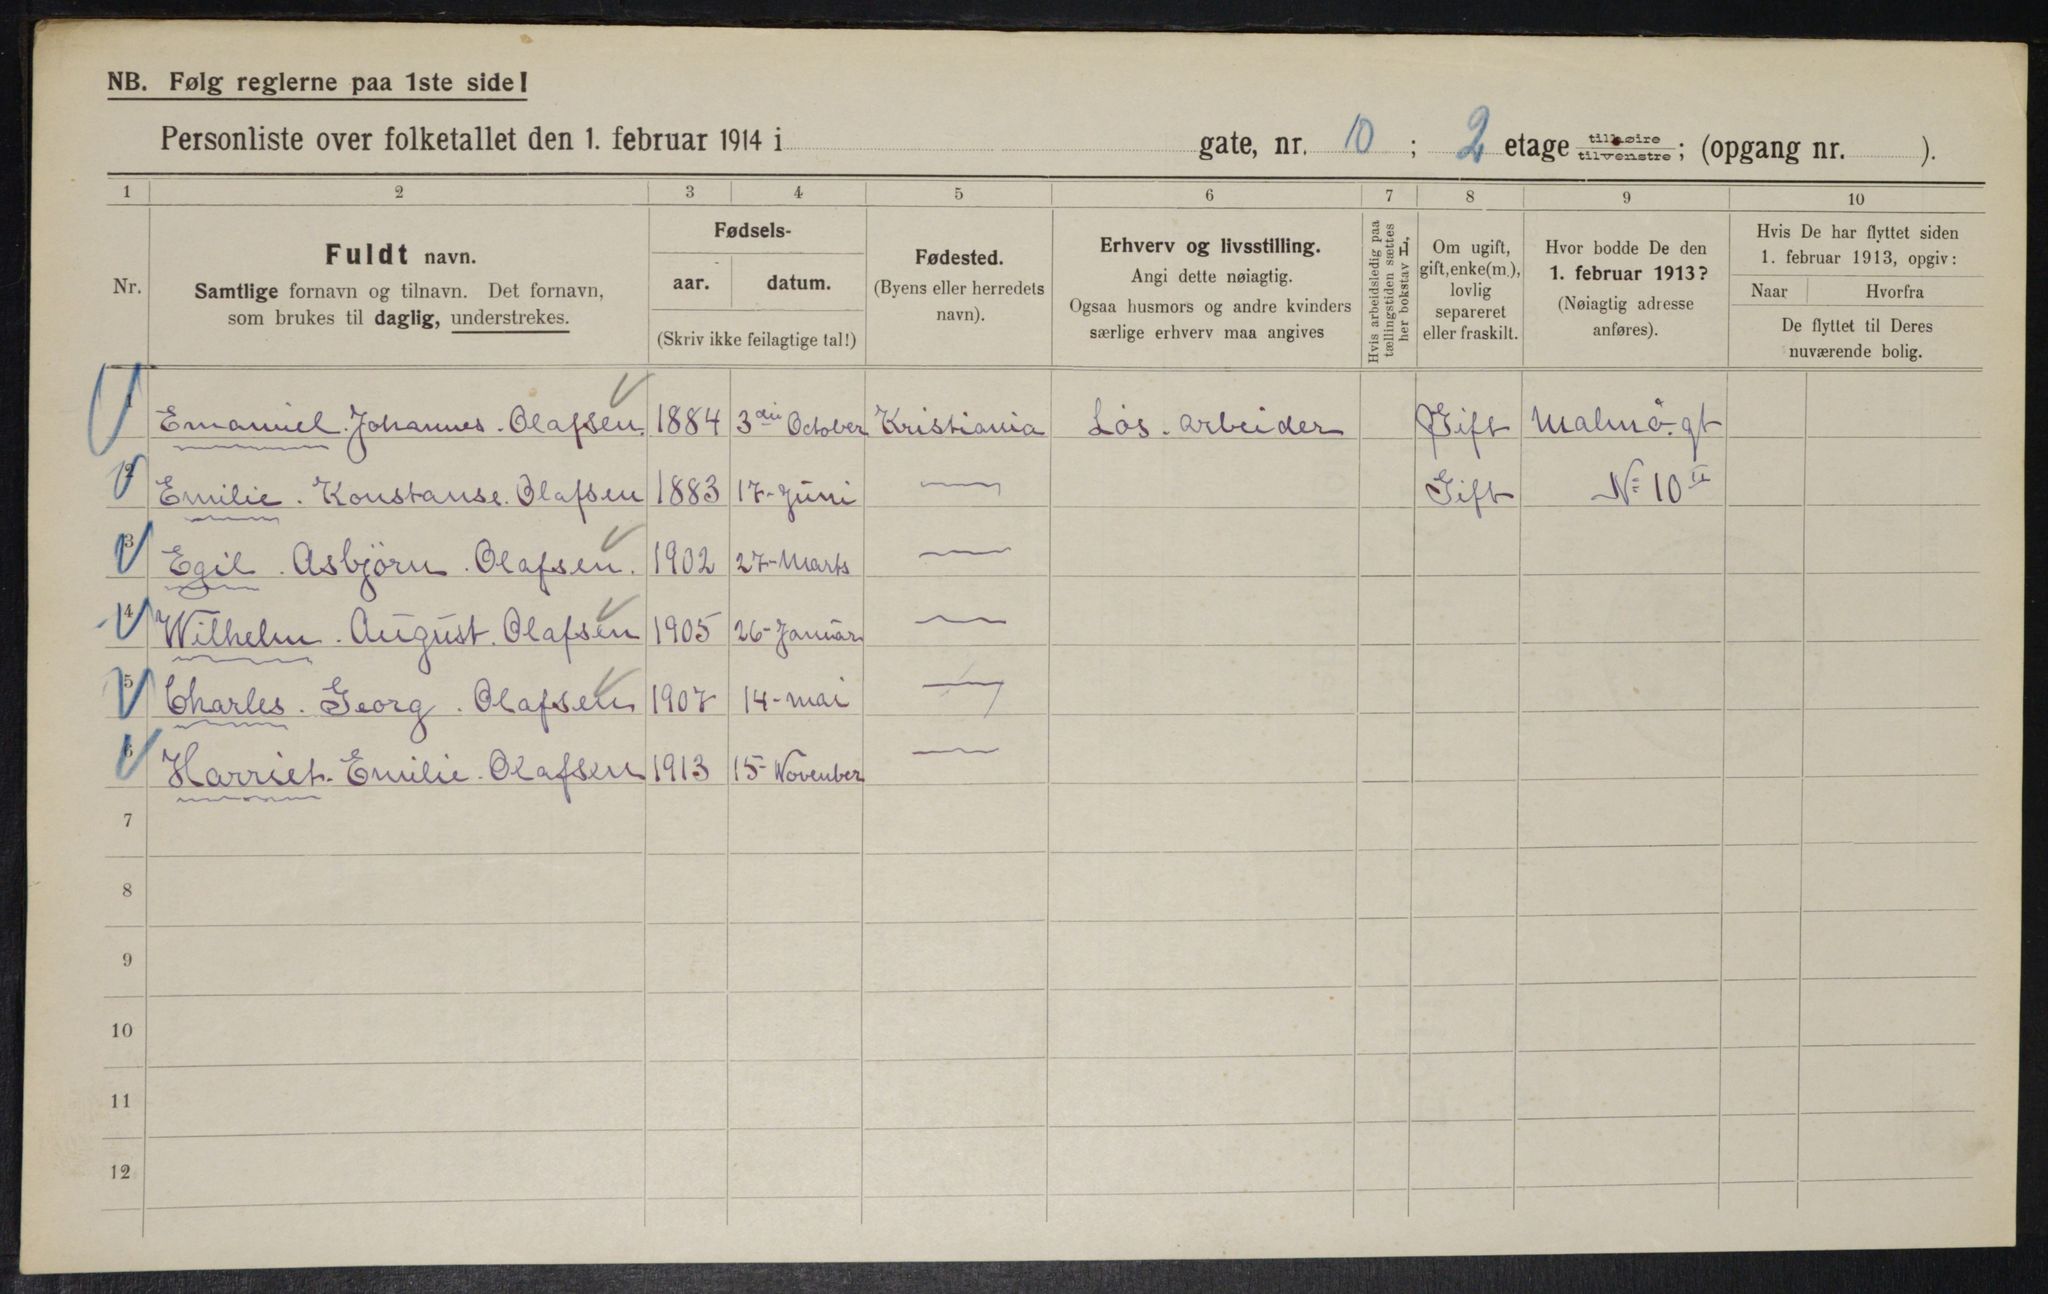 NB. Følg reglerne paa 1ste side!
Personliste over folketallet den 1. februar 1914 i gate, nr. 10 ; 2 etage tilhøire tilvenstre ; (opgang nr. ).
1 2 3 4 5 6 7 8 9 10
Nr.
Fuldt navn.
Samtlige fornavn og tilnavn. Det fornavn,
som brukes til daglig, understrekes.
Fødsels-
aar. datum.
(Skriv ikke feilagtige tal!)
Fødested.
(Byens eller herredets
navn).
Erhverv og livsstilling.
Angi dette nøiagtig.
Ogsaa husmors og andre kvinders
særlige erhverv maa angives
Hvis arbeidsledig paa
tællingstiden sættes
her bokstav L,
Om ugift,
gift, enke(m.),
lovlig
separeret
eller fraskilt.
Hvor bodde De den
1. februar 1913?
(Nøiagtig adresse
anføres).
Hvis De har flyttet siden
1. februar 1913, opgiv:
Naar Hvorfra
De flyttet til Deres
nuværende bolig.
1 Emanuel. Johannes. Olafsen. 1884 3die October Kristiania Løs. arbeider Gift Malmö.gt
2 Emilie. Konstanse. Olafsen 1883 17-Juni — Gift N= 10 II
3 Egil. Asbjörn. Olafsen. 1902 27-Marts —
4 Wilhelm. August. Olafsen 1905 26-Januar —
5 Charles. Georg. Olafsen 1907 14-mai —
6 Harriet. Emilie. Olafsen 1913 15-November —
7
8
9
10
11
12